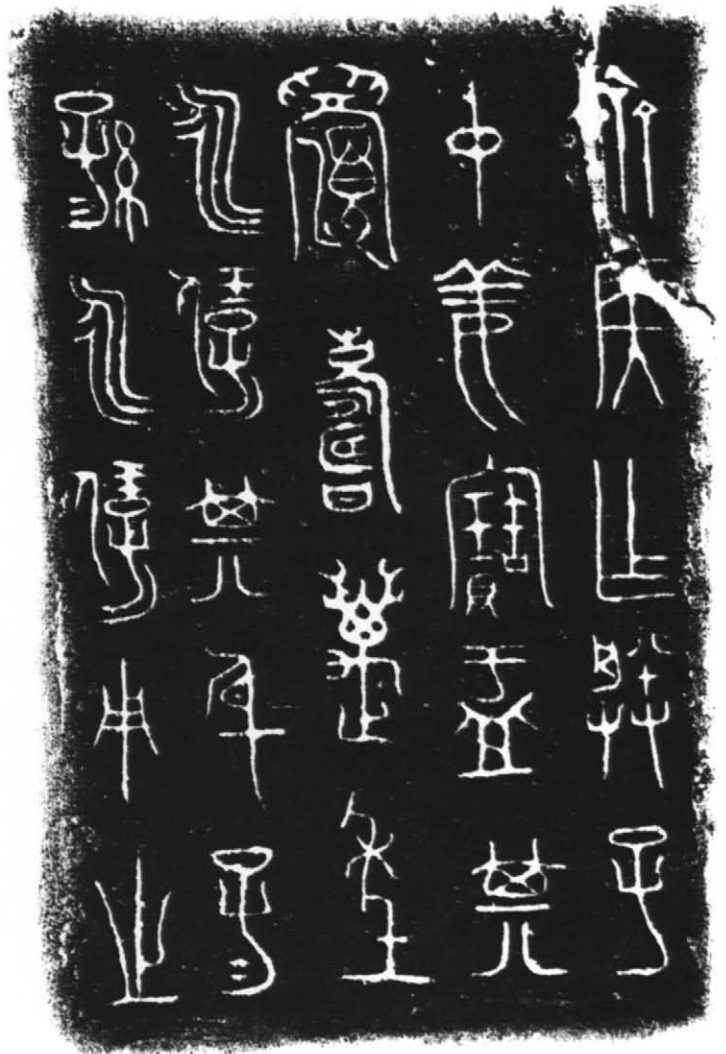 齊侯乍媵子
中姜寶盂其
眉壽邁年
永保其身子
孫永保用之